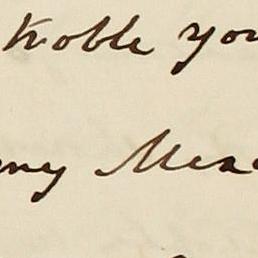 troble you
my Mea